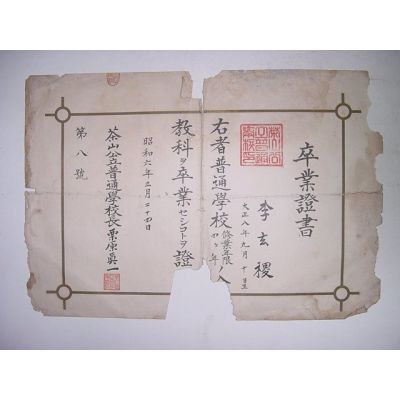 卒業證書
李玄稷
大正八年九月十日生
右者普通學校修業年限四ケ年ノ
教科ヲ卒業セシコトヲ證
昭和六年三月二十四日
茶山公立普通學校長栗原眞一
第八號